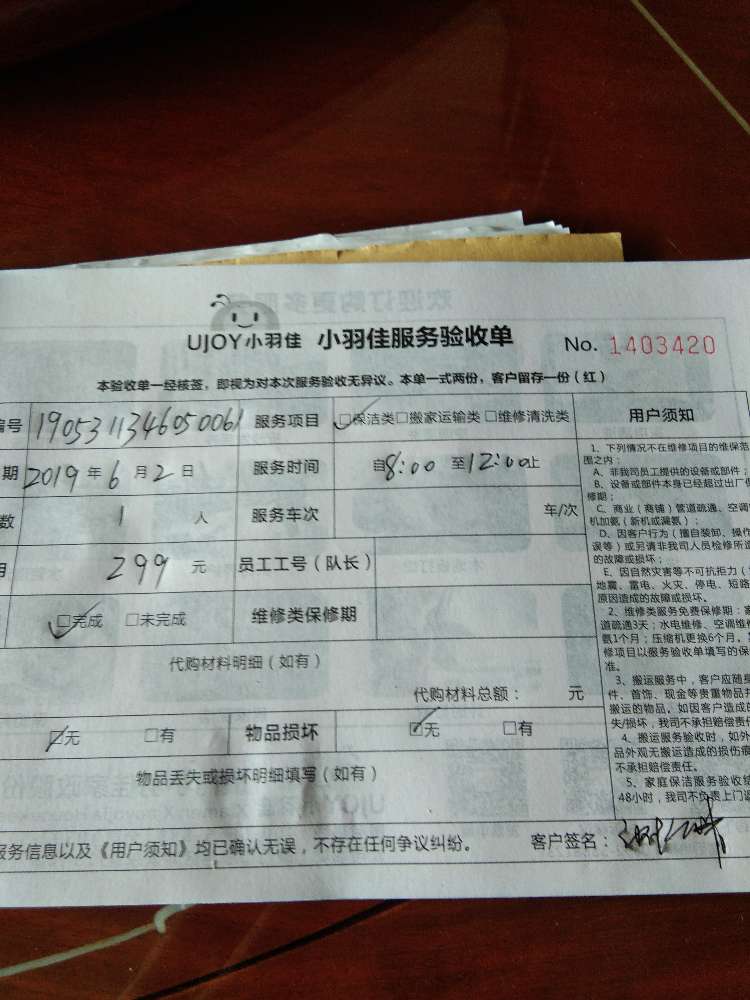 UJOY小羽佳 小羽佳服务验收单 No. 1403420
本验收单一经核签，即视为对本次服务验收无异议。本单一式两份，客户留存一份（红）
编号 1905311346050061 服务项目 □保洁类□搬家运输类□维修清洗类 用户须知
期 2019年6月2日 服务时间 自8:00至12:00止
数 1 人 服务车次 车/次
299 元 员工工号（队长）
□完成 □未完成 维修类保修期
代购材料明细（如有）
代购材料总额： 元
□无 □有 物品损坏 □无 □有
物品丢失或损坏明细填写（如有）
服务信息以及《用户须知》均已确认无误，不存在任何争议纠纷。 客户签名：
1、下列情况不在维修项目的维保范
围之内：
A、非我司员工提供的设备或部件；
B、设备或部件本身已经超过出厂保
修期；
C、商业（商铺）管道疏通、空调
机加氨（新机或漏氨）；
D、因客户行为（擅自装卸、操作
误等）或另请非我司人员检修所造
的故障或损坏；
E、因自然灾害等不可抗拒力（
地震、雷电、火灾、停电、短路
原因造成的故障或损坏。
2、维修类服务免费保修期：
道疏通3天；水电维修、空调维
氨1个月；压缩机更换6个月。
修项目以服务验收单填写的保
准。
3、搬运服务中，客户应随身
件、首饰、现金等贵重物品
搬运的物品。如因客户造成的
失/损坏，我司不承担赔偿责任
4、搬运服务验收时，如外
品外观无搬运造成的损伤痕
不承担赔偿责任。
5、家庭保洁服务验收
48小时，我司不负责上门